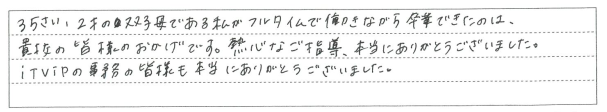 35さい、2才の双子母である私がフルタイムで働きながら卒業できたのは、
貴校の皆様のおかげです。熱心なご指導、本当にありがとうございました。
iTViPの事務の皆様も本当にありがとうございました。